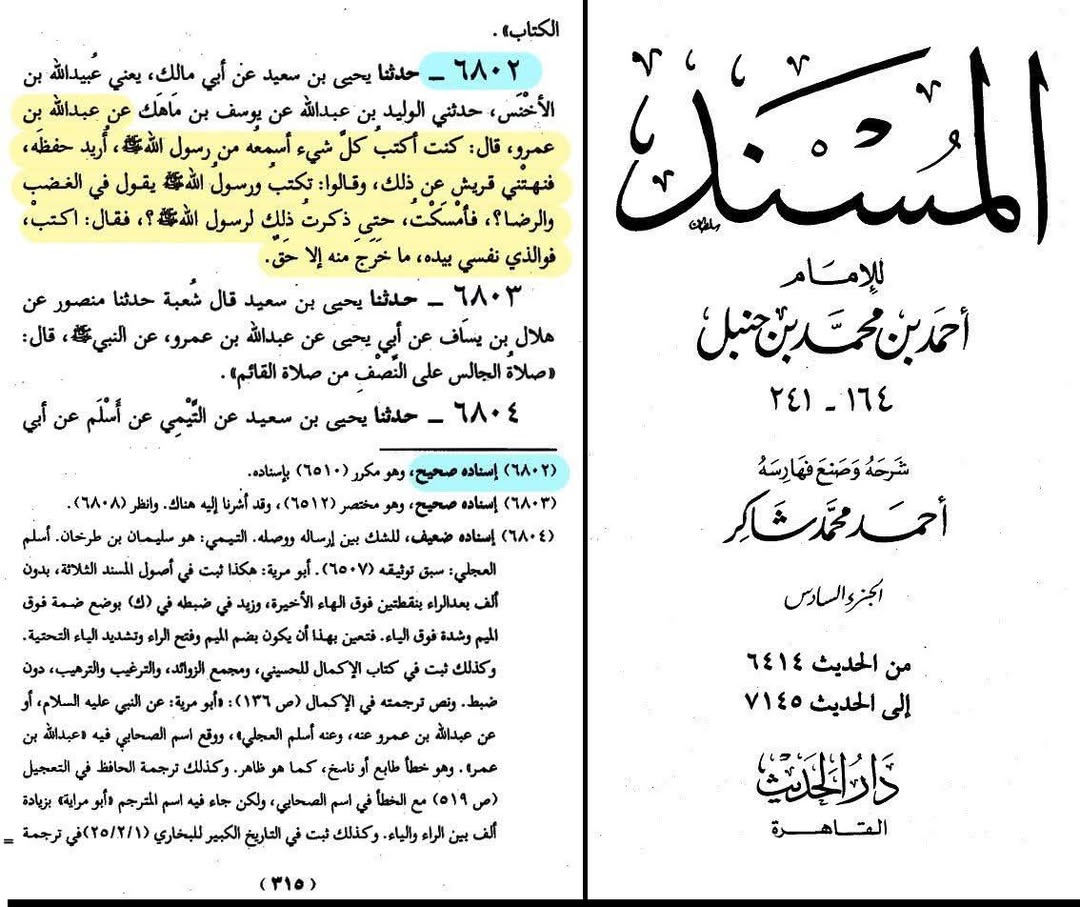 المسند
للإمام
أحمد بن محمد بن حنبل
١٦٤ - ٢٤١
شرحه وصنع فهارسه
أحمد محمد شاكر
الجزء السادس
من الحديث ٦٤١٤
إلى الحديث ٧١٤٥
دار الحديث
القاهرة
الكتاب» .
٦٨٠٢ ـ حدثنا يحيى بن سعيد عن أبي مالك، يعني عُبيدالله بن
الأخْنَس، حدثني الوليد بن عبدالله عن يوسف بن مَاهَك عن عبدالله بن
عمرو، قال: كنت أكتبُ كلَّ شيء أسمعُه من رسول الله ﷺ، أُريد حفظَه،
فنهتْني قريش عن ذلك، وقالوا: تكتبُ ورسولُ الله ﷺ يقول في الغضب
والرضا؟، فأمْسَكْتُ، حتى ذكرتُ ذلك لرسول الله ﷺ؟، فقال: اكتبْ،
فوالذي نفسي بيده، ما خَرَجَ منه إلا حَقّ.
٦٨٠٣ ـ حدثنا يحيى بن سعيد قال شُعبة حدثنا منصور عن
هلال بن يسَاف عن أبي يحيى عن عبدالله بن عمرو، عن النبي ﷺ، قال:
«صلاةُ الجالس على النَّصْف من صلاة القائم» .
٦٨٠٤ ـ حدثنا يحيى بن سعيد عن التَّيْمِي عن أَسْلَم عن أبي
(٦٨٠٢) إسناده صحيح، وهو مكرر (٦٥١٠) بإسناده.
(٦٨٠٣) إسناده صحيح، وهو مختصر (٦٥١٢)، وقد أشرنا إليه هناك. وانظر (٦٨٠٨).
(٦٨٠٤) إسناده ضعيف، للشك بين إرساله ووصله. التيمي: هو سليمان بن طرخان. أسلم
العجلي: سبق توثيقه (٦٥٠٧). أبو مرية: هكذا ثبت في أصول المسند الثلاثة، بدون
ألف بعدالراء بنقطتين فوق الهاء الأخيرة، وزيد في ضبطه في (ك) بوضع ضمة فوق
الميم وشدة فوق الياء. فتعين بهذا أن يكون بضم الميم وفتح الراء وتشديد الياء التحتية.
وكذلك ثبت في كتاب الإكمال للحسيني، ومجمع الزوائد، والترغيب والترهيب، دون
ضبط. ونص ترجمته في الإكمال (ص ١٣٦): «أبو مرية: عن النبي عليه السلام، أو
عن عبدالله بن عمرو عنه، وعنه أسلم العجلي»، ووقع اسم الصحابي فيه «عبدالله بن
عمر» . وهو خطأ طابع أو ناسخ، كما هو ظاهر. وكذلك ترجمة الحافظ في التعجيل
(ص ٥١٩) مع الخطأ في اسم الصحابي، ولكن جاء فيه اسم المترجم «أبو مراية» بزيادة
ألف بين الراء والياء. وكذلك ثبت في التاريخ الكبير للبخاري (٢٥/٢/١) في ترجمة =
(٣١٥)